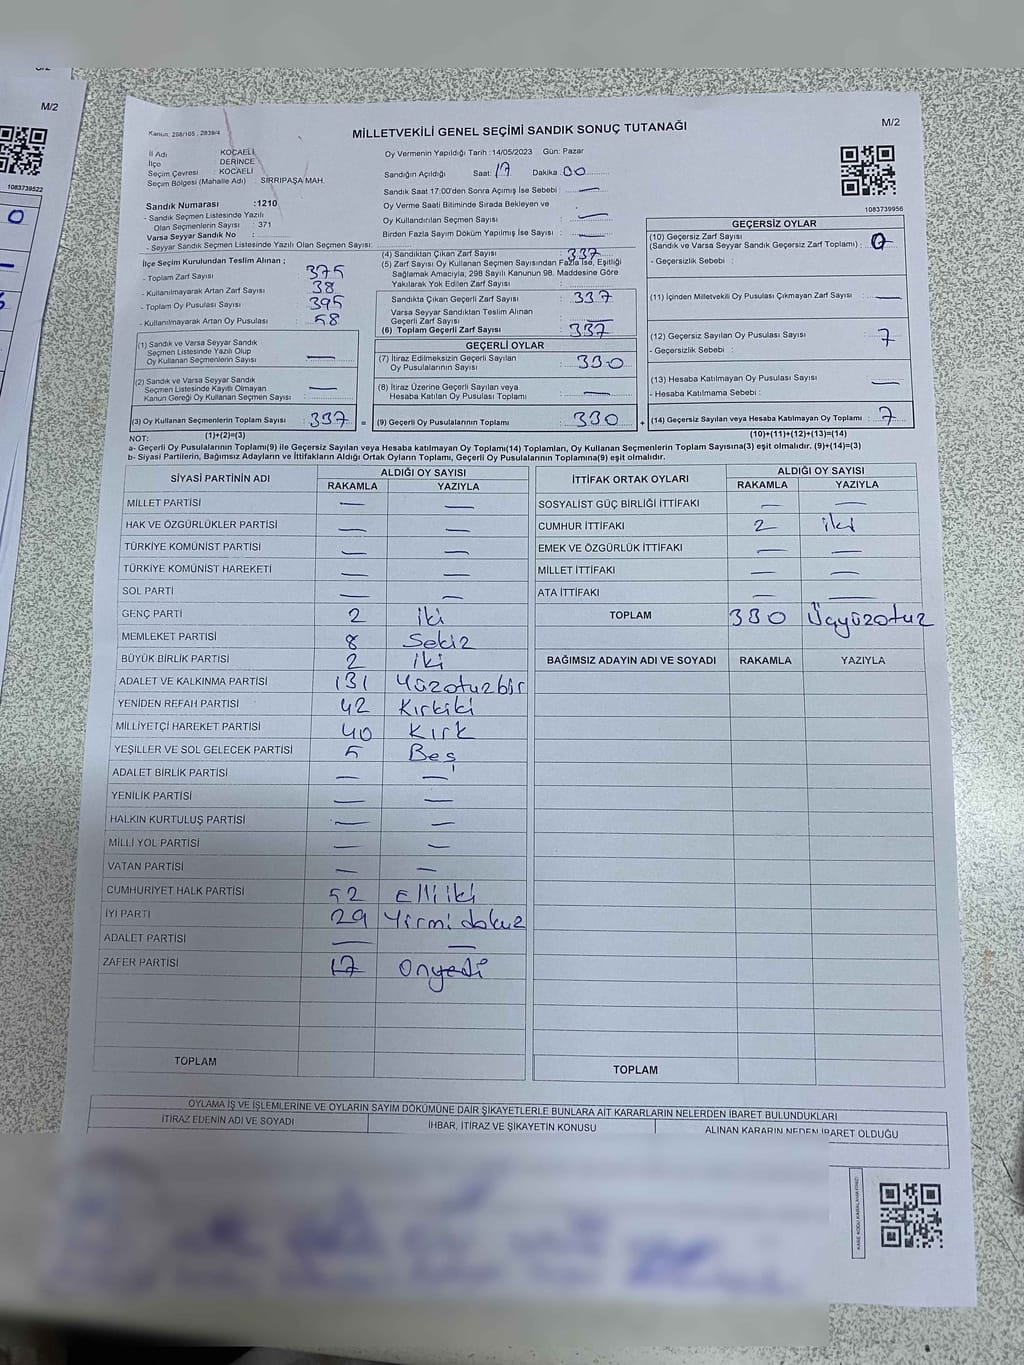 M/2
1083739522
0
Kanun, 298/105 , 2839/4
MİLLETVEKİLİ GENEL SEÇİMİ SANDIK SONUÇ TUTANAĞI
M/2
İl Adı KOCAELİ
İlçe DERİNCE
Seçim Çevresi KOCAELİ
Seçim Bölgesi (Mahalle Adı) : SIRRIPAŞA MAH.
Sandık Numarası :1210
- Sandık Seçim Listesinde Yazılı
Olan Seçmenlerin Sayısı : 371
Varsa Seyyar Sandık No :
- Seyyar Sandık Seçim Listesinde Yazılı Olan Seçmen Sayısı:
Oy Vermenin Yapıldığı Tarih :14/05/2023 Gün: Pazar
Sandığın Açıldığı Saat: 17 Dakika 00
Sandık Saat 17:00'den Sonra Açımış İse Sebebi : —
Oy Verme Saati Bitiminde Sırada Bekleyen ve
Oy Kullandırılan Seçmen Sayısı : —
Birden Fazla Sayım Döküm Yapılmış İse Sayısı : —
1083739956
İlçe Seçim Kurulundan Teslim Alınan ;
- Toplam Zarf Sayısı : 375
- Kullanılmayarak Artan Zarf Sayısı : 38
- Toplam Oy Pusulası Sayısı : 395
- Kullanılmayarak Artan Oy Pusulası : 58
(1) Sandık ve Varsa Seyyar Sandık
Seçmen Listesinde Yazılı Olup
Oy Kullanan Seçmenlerin Sayısı : —
(2) Sandık ve Varsa Seyyar Sandık
Seçmen Listesinde Kayıtlı Olmayan
Kanun Gereği Oy Kullanan Seçmen Sayısı : —
(3) Oy Kullanan Seçmenlerin Toplam Sayısı : 337
(1)+(2)=(3)
(4) Sandıktan Çıkan Zarf Sayısı : 337
(5) Zarf Sayısı Oy Kullanan Seçmen Sayısından Fazla İse, Eşitliği
Sağlamak Amacıyla, 298 Sayılı Kanunun 98. Maddesine Göre
Yakılarak Yok Edilen Zarf Sayısı :
Sandıkta Çıkan Geçerli Zarf Sayısı : 337
Varsa Seyyar Sandıktan Teslim Alınan
Geçerli Zarf Sayısı : —
(6) Toplam Geçerli Zarf Sayısı : 337
GEÇERLİ OYLAR
(7) İtiraz Edilmeksizin Geçerli Sayılan
Oy Pusulalarının Sayısı : 330
(8) İtiraz Üzerine Geçerli Sayılan veya
Hesaba Katılan Oy Pusulası Toplamı : —
= (9) Geçerli Oy Pusulalarının Toplamı : 330
GEÇERSİZ OYLAR
(10) Geçersiz Zarf Sayısı
(Sandık ve Varsa Seyyar Sandık Geçersiz Zarf Toplamı) : 0
- Geçersizlik Sebebi :
(11) İçinden Milletvekili Oy Pusulası Çıkmayan Zarf Sayısı : —
(12) Geçersiz Sayılan Oy Pusulası Sayısı : 7
- Geçersizlik Sebebi :
(13) Hesaba Katılmayan Oy Pusulası Sayısı : —
- Hesaba Katılmama Sebebi :
+ (14) Geçersiz Sayılan veya Hesaba Katılmayan Oy Toplamı : 7
(10)+(11)+(12)+(13)=(14)
NOT:
a- Geçerli Oy Pusulalarının Toplamı(9) ile Geçersiz Sayılan veya Hesaba katılmayan Oy Toplamı(14) Toplamları, Oy Kullanan Seçmenlerin Toplam Sayısına(3) eşit olmalıdır. (9)+(14)=(3)
b- Siyasi Partilerin, Bağımsız Adayların ve İttifakların Aldığı Ortak Oyların Toplamı, Geçerli Oy Pusulalarının Toplamına(9) eşit olmalıdır.
SİYASİ PARTİNİN ADI ALDIĞI OY SAYISI
RAKAMLA YAZIYLA
MİLLET PARTİSİ — —
HAK VE ÖZGÜRLÜKLER PARTİSİ — —
TÜRKİYE KOMÜNİST PARTİSİ — —
TÜRKİYE KOMÜNİST HAREKETİ — —
SOL PARTİ — —
GENÇ PARTİ 2 iki
MEMLEKET PARTİSİ 8 Sekiz
BÜYÜK BİRLİK PARTİSİ 2 iki
ADALET VE KALKINMA PARTİSİ 131 Yüzotuzbir
YENİDEN REFAH PARTİSİ 42 Kırkiki
MİLLİYETÇİ HAREKET PARTİSİ 40 Kırk
YEŞİLLER VE SOL GELECEK PARTİSİ 5 Beş
ADALET BİRLİK PARTİSİ — —
YENİLİK PARTİSİ — —
HALKIN KURTULUŞ PARTİSİ — —
MİLLİ YOL PARTİSİ — —
VATAN PARTİSİ — —
CUMHURİYET HALK PARTİSİ 52 Elliiki
İYİ PARTİ 29 Yirmidokuz
ADALET PARTİSİ — —
ZAFER PARTİSİ 17 Onyedi
TOPLAM
İTTİFAK ORTAK OYLARI ALDIĞI OY SAYISI
RAKAMLA YAZIYLA
SOSYALİST GÜÇ BİRLİĞİ İTTİFAKI — —
CUMHUR İTTİFAKI 2 iki
EMEK VE ÖZGÜRLÜK İTTİFAKI — —
MİLLET İTTİFAKI — —
ATA İTTİFAKI — —
TOPLAM 330 Üçyüzotuz
BAĞIMSIZ ADAYIN ADI VE SOYADI RAKAMLA YAZIYLA
TOPLAM
OYLAMA İŞ VE İŞLEMLERİNE VE OYLARIN SAYIM DÖKÜMÜNE DAİR ŞİKAYETLERLE BUNLARA AİT KARARLARIN NELERDEN İBARET BULUNDUKLARI
İTİRAZ EDENİN ADI VE SOYADI İHBAR, İTİRAZ VE ŞİKAYETİN KONUSU ALINAN KARARIN NEDEN İBARET OLDUĞU